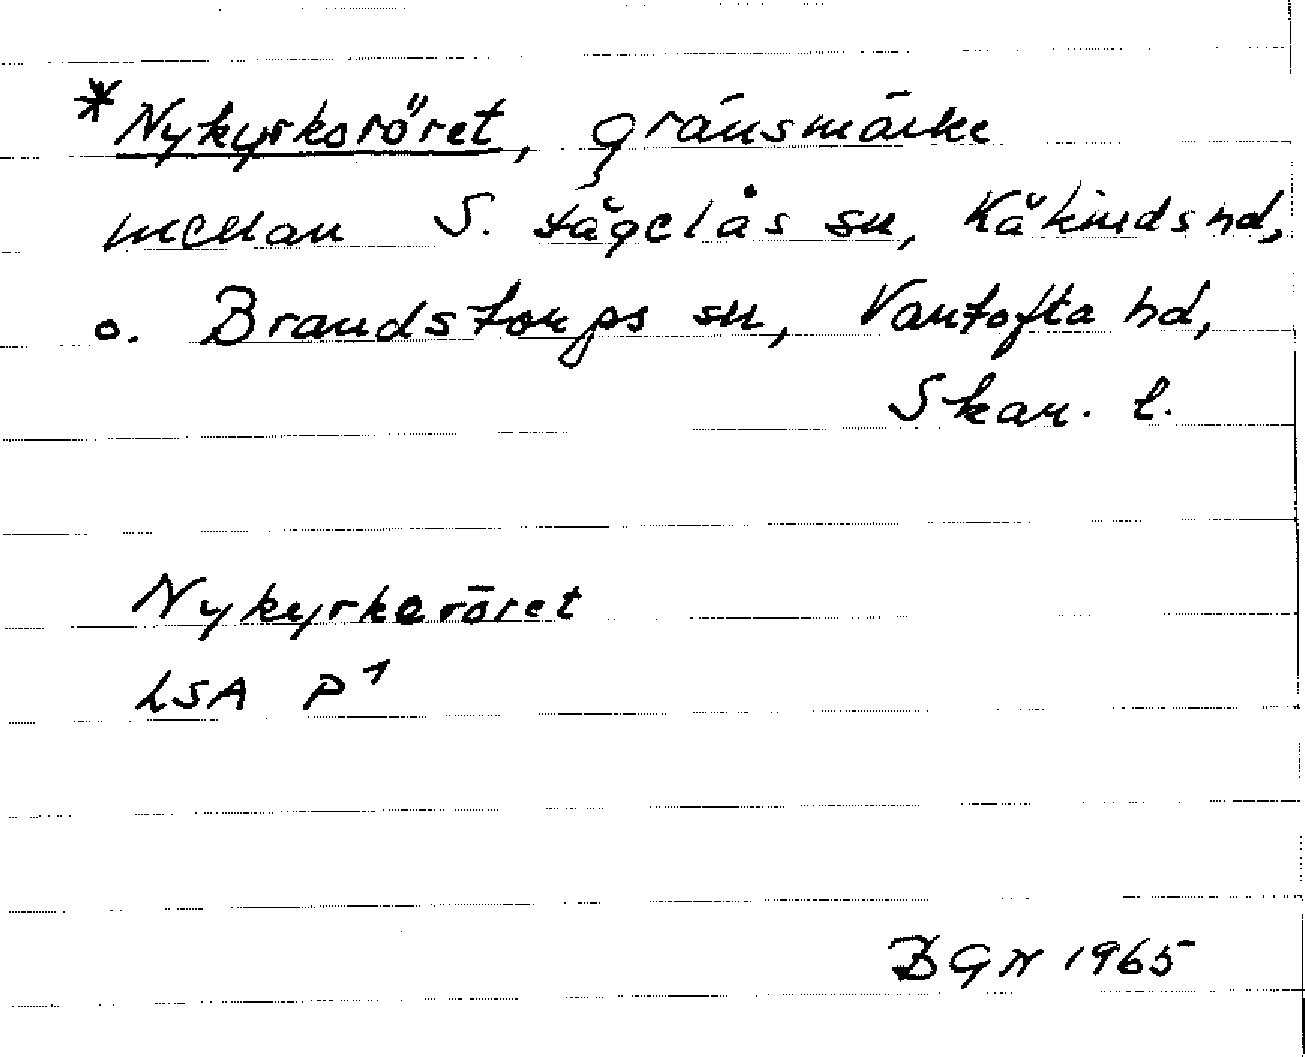 *Nykyrkoröret, gränsmärke
mellan S. Fågelås sn, Kåkinds hd,
o. Brandstorps sn, Vartofta hd,
Skar. l.
Nykyrkeröret
LSA P 1
BGN 1965